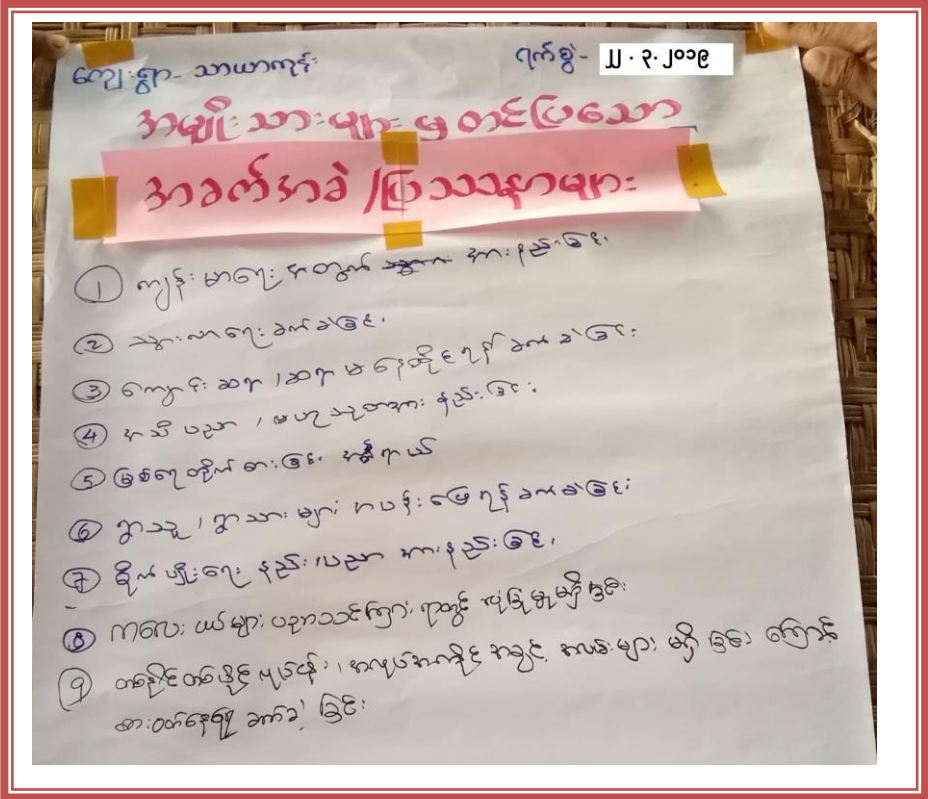 ကျေးရွာ - သာယာကုန်း ရက်စွဲ - ၂၂.၃.၂၀၁၉
အမျိုးသားများမှ တင်ပြသော
အခက်အခဲ / ပြဿနာများ
① ကျန်းမာရေး အတွက် အားနည်းခြင်း
② သွားလာရေး ခက်ခဲခြင်း
③ ကျောင်းဆရာ / ဆရာမ နေထိုင်ရန် ခက်ခဲခြင်း
④ အသိပညာ / ဗဟုသုတအား နည်းခြင်း
⑤ မြစ်ရေတိုက်စားခြင်း အန္တရာယ်
⑥ ရွာသူ / ရွာသားများ မြေရန် ခက်ခဲခြင်း
⑦ စိုက်ပျိုးရေး နည်းပညာ အားနည်းခြင်း
⑧ ကလေးငယ်များ ပညာသင်ကြား ရာတွင် မရှိခြင်း
⑨ တစ်နိုင်တစ်ပိုင် လုပ်ငန်း၊ အလုပ်အကိုင် အခွင့်အလမ်းများ မရှိခြင်းကြောင့်
စားဝတ်နေရေး ခက်ခဲခြင်း